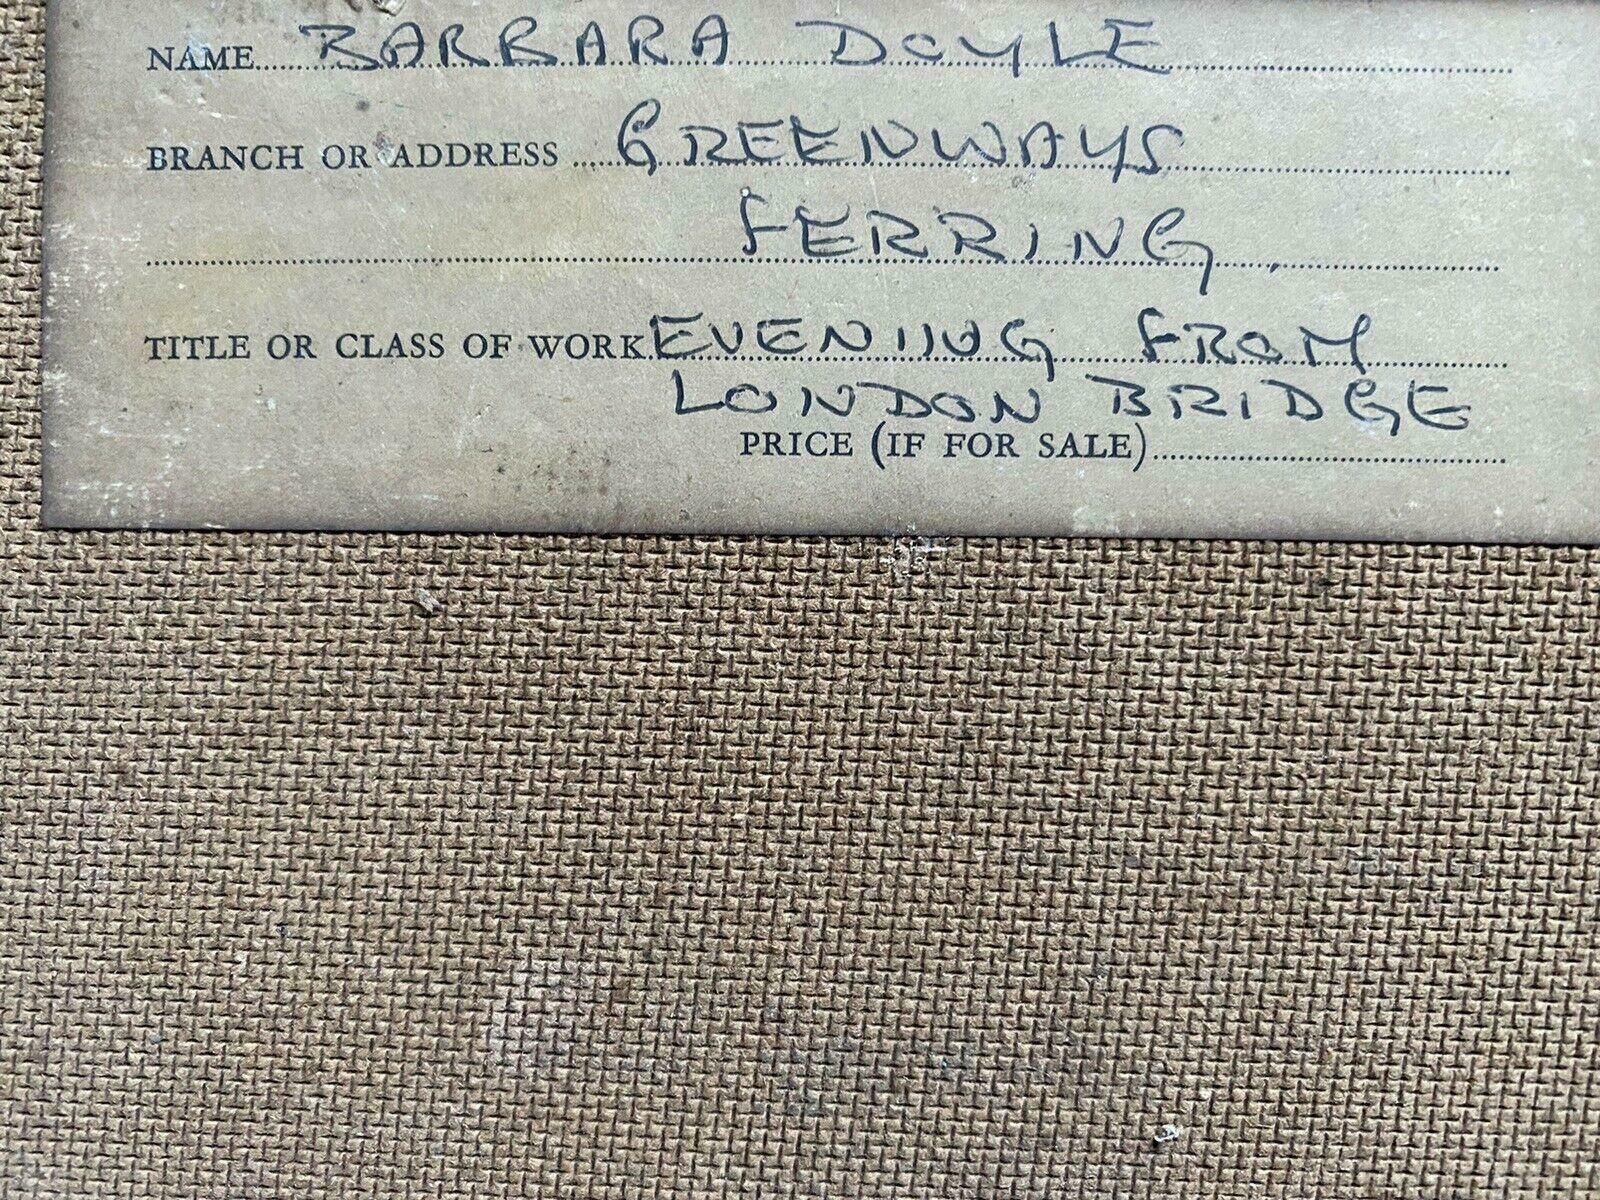 NAME BARBARA DOYLE
BRANCH OR ADDRESS GREENWAYS
FERRING.
TITLE OR CLASS OF WORK EVENING FROM
LONDON BRIDGE
PRICE (IF FOR SALE)